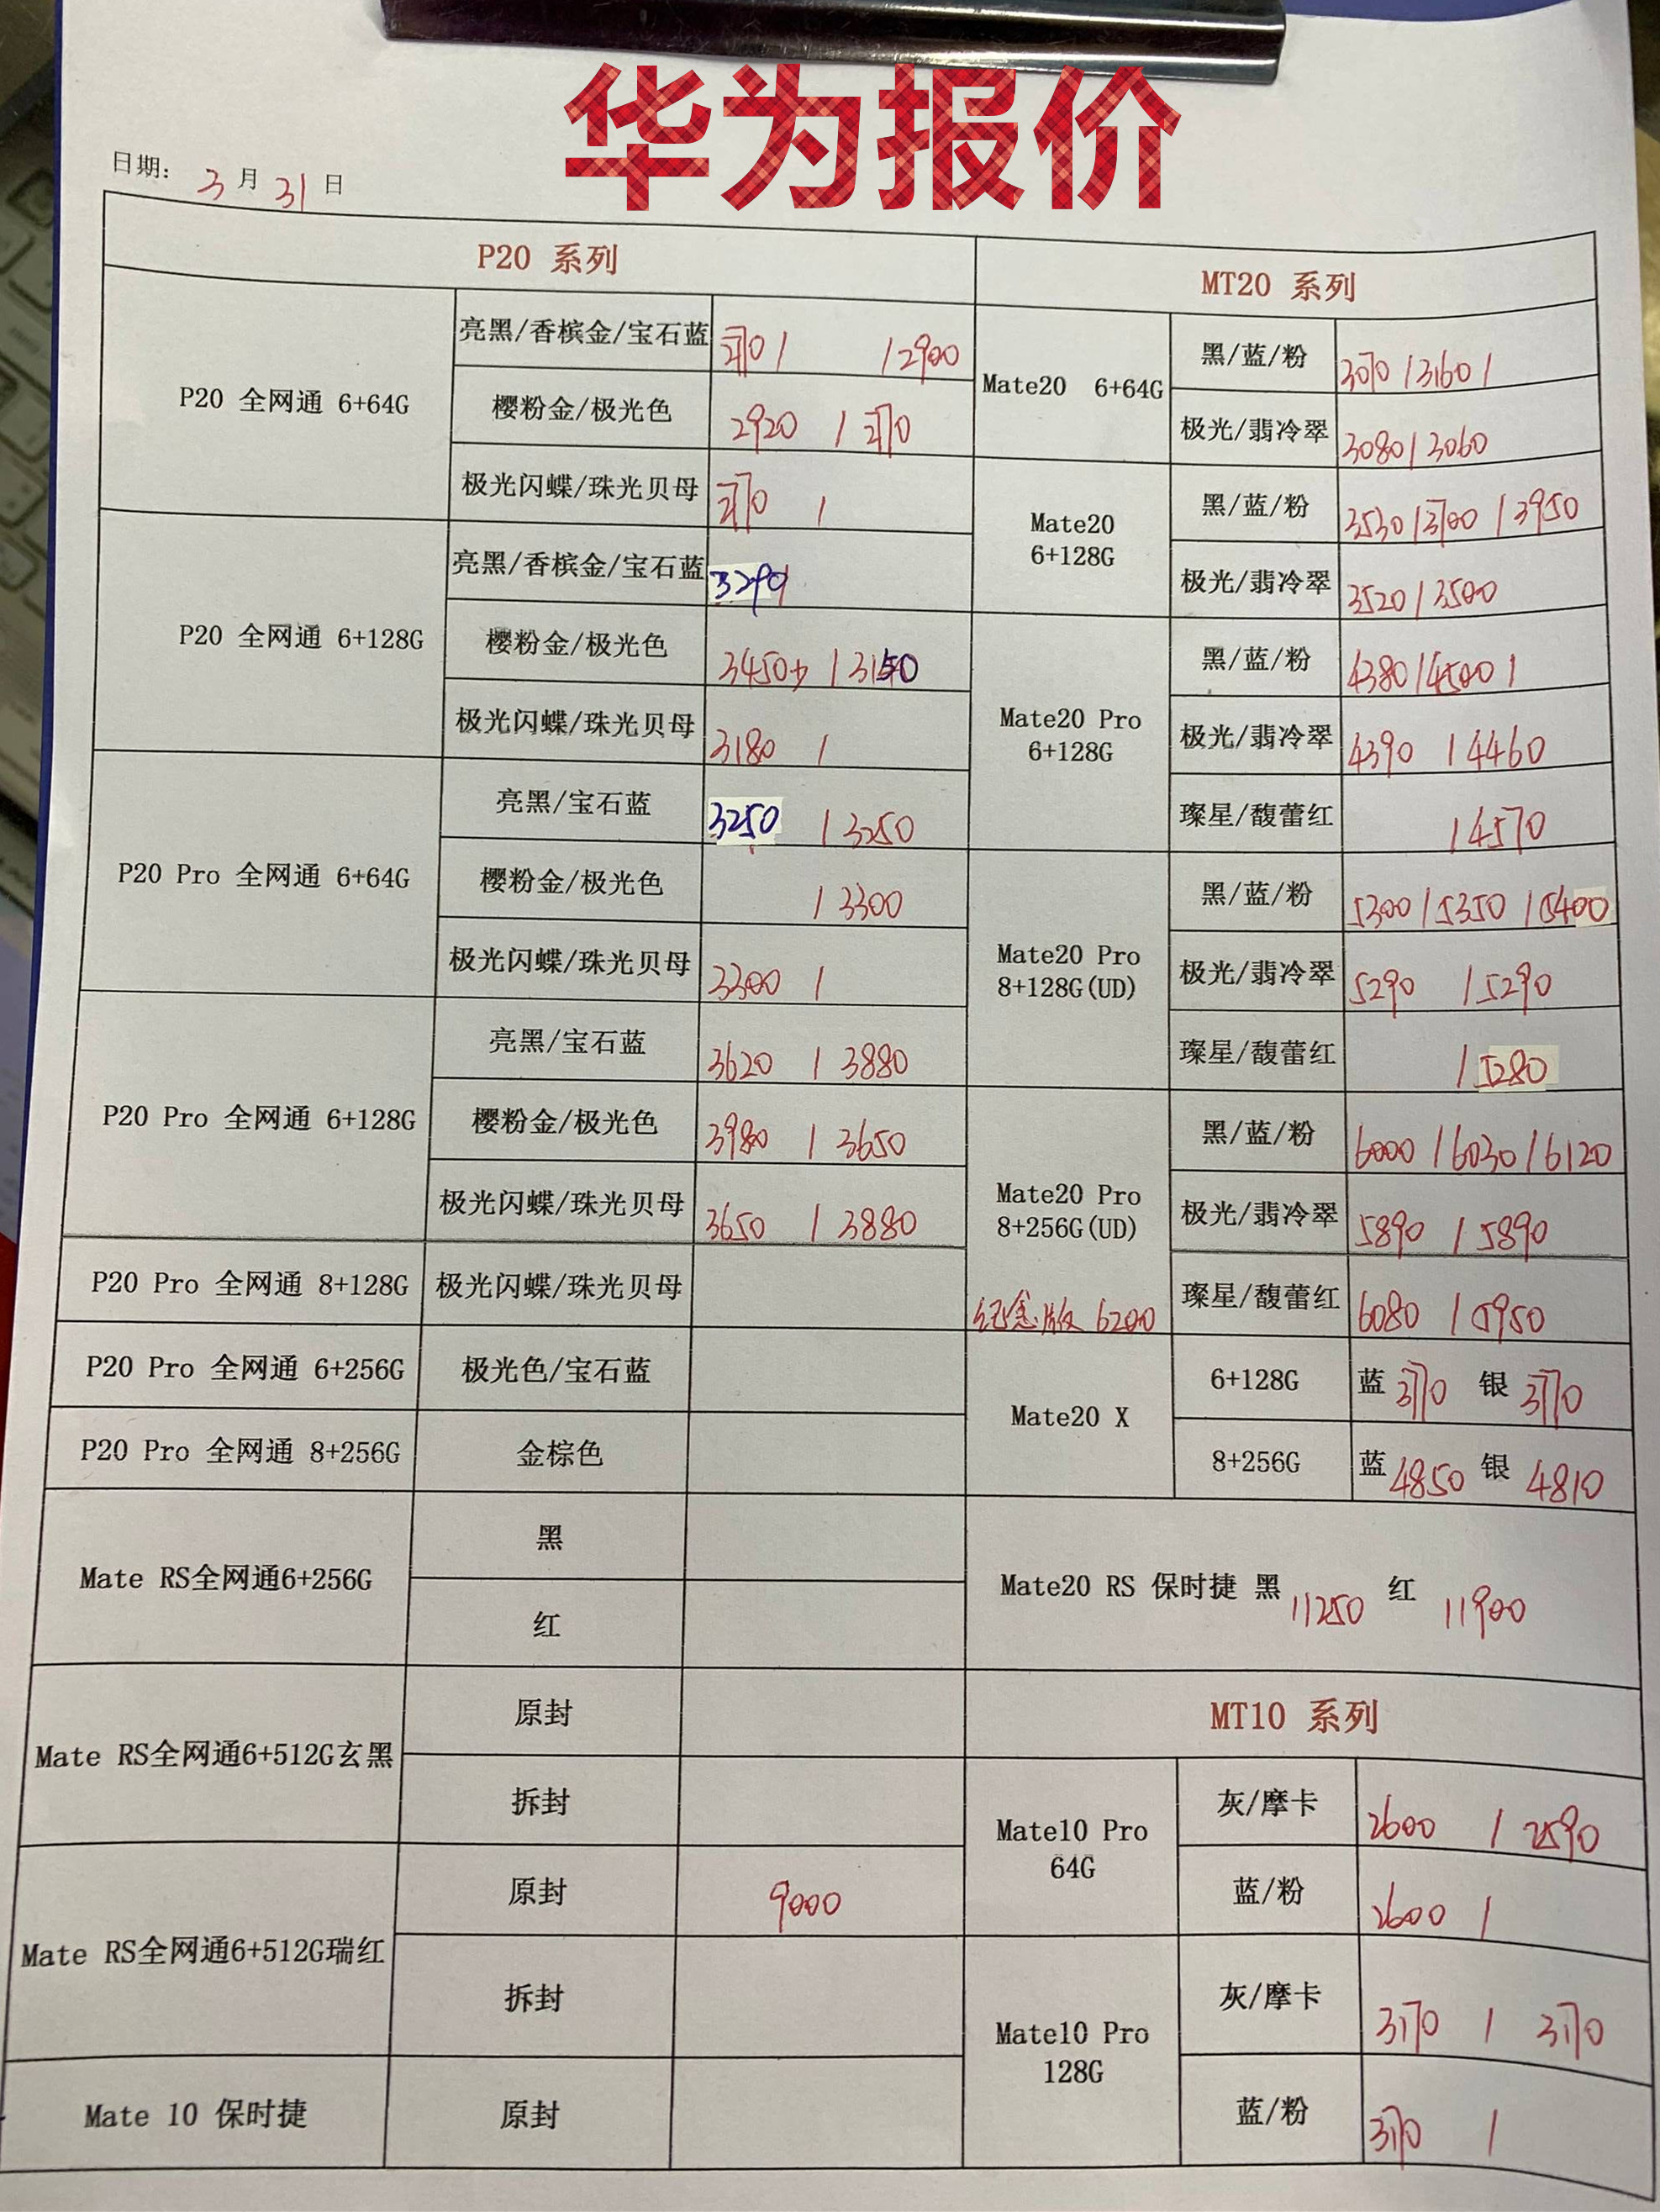 华为报价
日期: 3 月 31 日
P20 系列
P20 全网通 6+64G
亮黑/香槟金/宝石蓝 / /2900
樱粉金/极光色 2920 /
极光闪蝶/珠光贝母 /
P20 全网通 6+128G
亮黑/香槟金/宝石蓝 3290
樱粉金/极光色 3450 / 3150
极光闪蝶/珠光贝母 3180 /
P20 Pro 全网通 6+64G
亮黑/宝石蓝 3250 / 3250
樱粉金/极光色 / 3300
极光闪蝶/珠光贝母 3300 /
P20 Pro 全网通 6+128G
亮黑/宝石蓝 3620 / 3880
樱粉金/极光色 3980 / 3650
极光闪蝶/珠光贝母 3650 / 3880
P20 Pro 全网通 8+128G 极光闪蝶/珠光贝母
P20 Pro 全网通 6+256G 极光色/宝石蓝
P20 Pro 全网通 8+256G 金棕色
Mate RS全网通6+256G
黑
红
Mate RS全网通6+512G玄黑
原封
拆封
Mate RS全网通6+512G瑞红
原封 9000
拆封
Mate 10 保时捷 原封
MT20 系列
Mate20 6+64G
黑/蓝/粉 3070 /3160 /
极光/翡冷翠 3080 / 3060
Mate20
6+128G
黑/蓝/粉 3530 /3700 / 3950
极光/翡冷翠 3520 / 3500
Mate20 Pro
6+128G
黑/蓝/粉 4380 /4500 /
极光/翡冷翠 4390 / 4460
璨星/馥蕾红 / 4570
Mate20 Pro
8+128G(UD)
黑/蓝/粉 5300 / 5350 / 5400
极光/翡冷翠 5290 / 5290
璨星/馥蕾红 / 5280
Mate20 Pro
8+256G(UD)
纪念版 6200
黑/蓝/粉 6000 / 6030 / 6120
极光/翡冷翠 5890 / 5890
璨星/馥蕾红 6080 / 5950
Mate20 X
6+128G 蓝 3770 银 3770
8+256G 蓝 4850 银 4810
Mate20 RS 保时捷 黑 11250 红 11900
MT10 系列
Mate10 Pro
64G
灰/摩卡 2600 / 2590
蓝/粉 2600 /
Mate10 Pro
128G
灰/摩卡 3170 / 3170
蓝/粉 3170 /